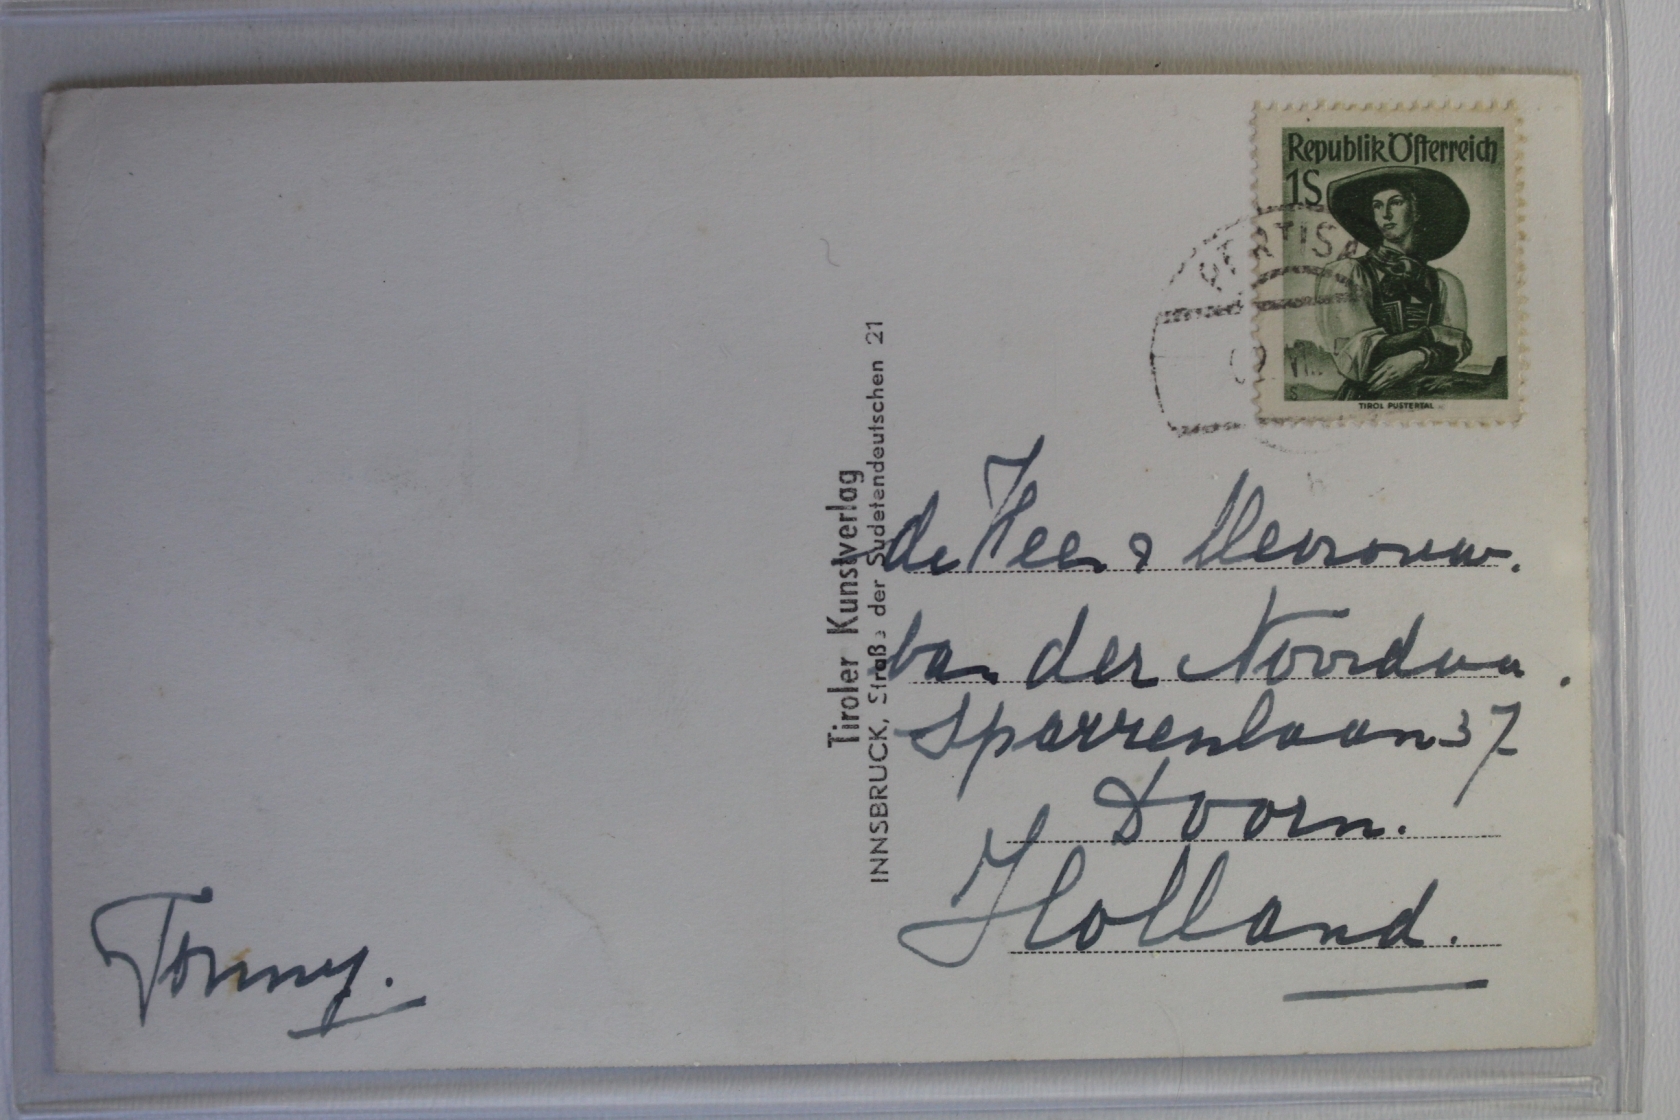 Republik Österreich
1S
PERTISA
VIII
TIROL PUSTERTAL
Tiroler Kunstverlag
INNSBRUCK, Straße der Sudetendeutschen 21
de Heer & Mevrouw.
van der Noordaa.
Sparrenlaan 37
Doorn.
Holland.
Tonny.